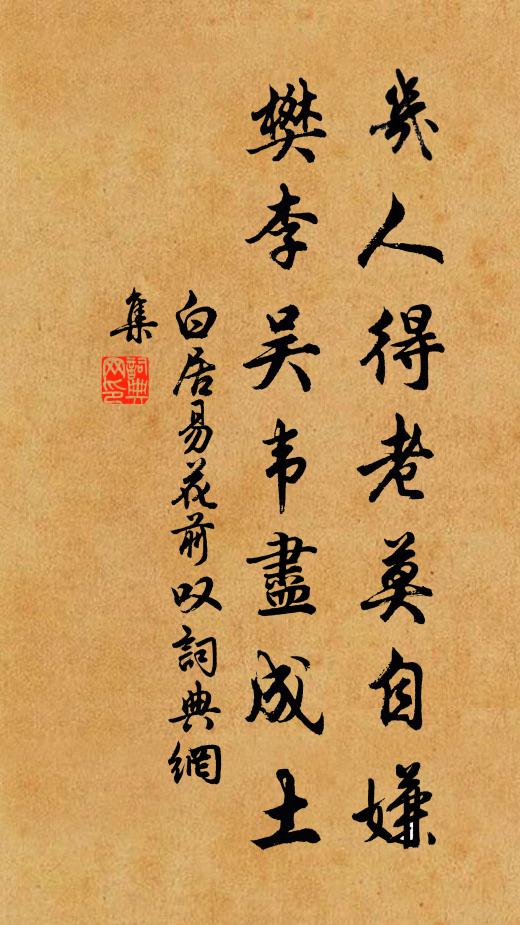 幾人得老莫自嫌
樊李吴韦盡成土
白居易花前叹詞典網
集
詞典
网印